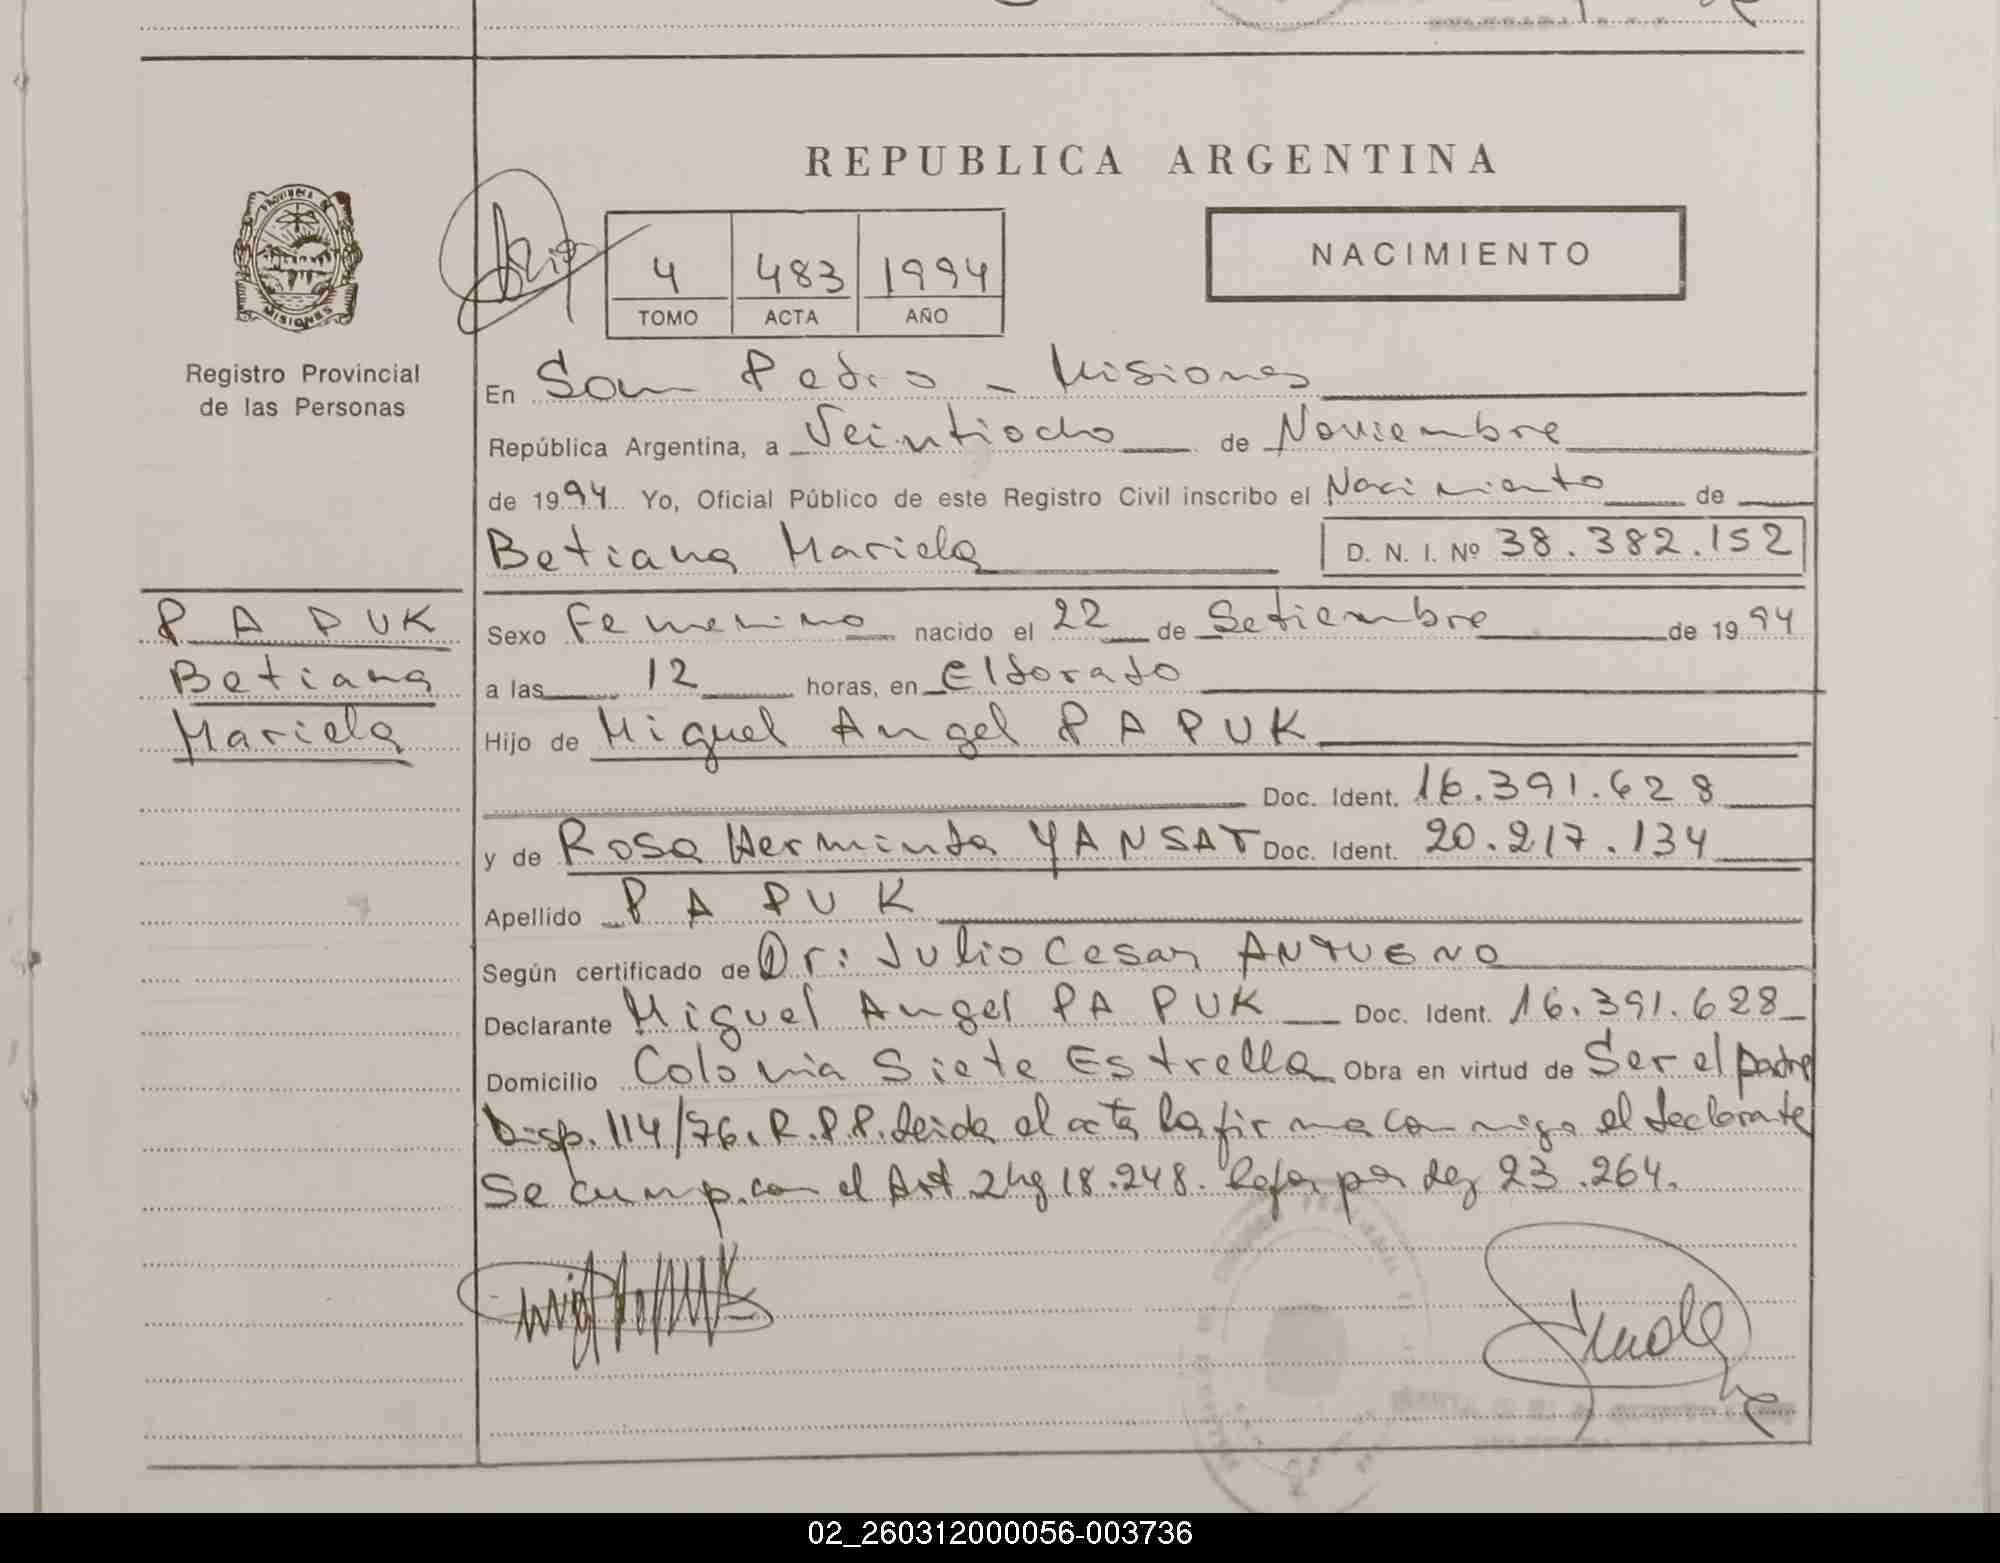 REPUBLICA ARGENTINA
PROVINCIA DE
MISIONES
Registro Provincial
de las Personas
4 483 1994
TOMO ACTA AÑO
NACIMIENTO
En San Pedro - Misiones
República Argentina, a Veintiocho de Noviembre
de 1994 Yo, Oficial Público de este Registro Civil inscribo el Nacimiento de
Betiana Mariela D. N. I. Nº 38.382.152
PAPUK
Betiana
Mariela
Sexo Femenino nacido el 22 de Setiembre de 1994
a las 12 horas, en Eldorado
Hijo de Miguel Angel PAPUK
Doc. Ident. 16.391.628
y de Rosa Herminda YANSAT Doc. Ident. 20.217.134
Apellido PAPUK
Según certificado de Dr: Julio Cesar ANTUENO
Declarante Miguel Angel PAPUK Doc. Ident. 16.391.628
Domicilio Colonia Siete Estrella Obra en virtud de Ser el padre
Disp. 114/76. R.P.P. Leida el acta la firma conmigo el declarante
Se cump. con el Art 2 18.248. por Ley 23.264.
02_260312000056-003736